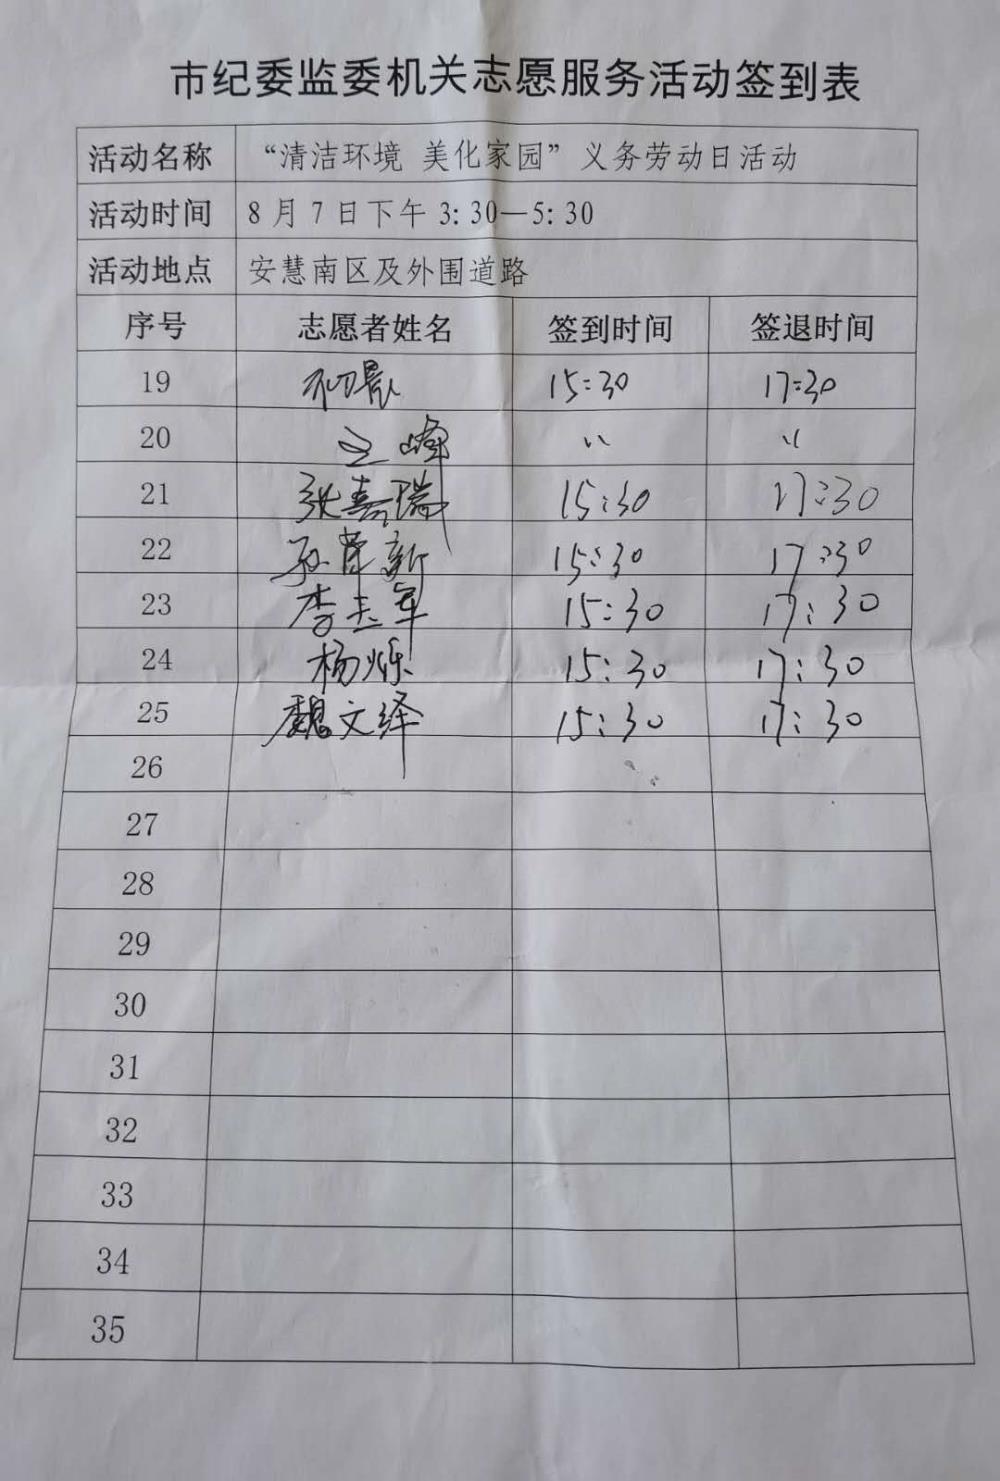 市纪委监委机关志愿服务活动签到表
活动名称 “清洁环境 美化家园”义务劳动日活动
活动时间 8月7日下午3:30—5:30
活动地点 安慧南区及外围道路
序号 志愿者姓名 签到时间 签退时间
19 15:30 17:30
20 峰 〃 〃
21 张嘉瑞 15:30 17:30
22 孙 新 15:30 17:30
23 李志军 15:30 17:30
24 杨烁 15:30 17:30
25 魏文绎 15:30 17:30
26
27
28
29
30
31
32
33
34
35